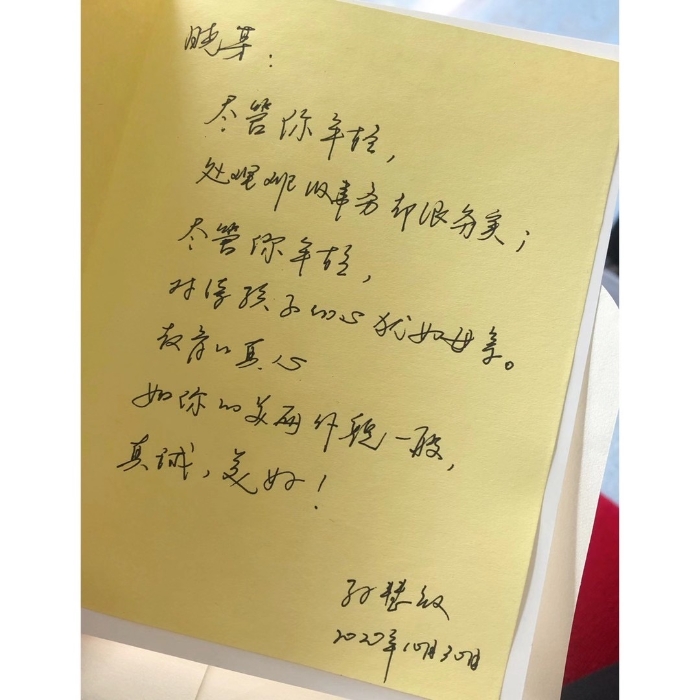 晓某:
尽管你年轻,
处理班级事务却很务实;
尽管你年轻,
对待孩子的心犹如母亲。
教育的真心
如你的美丽外貌一般,
真诚,美好!
孙慧敏
2020年10月30日